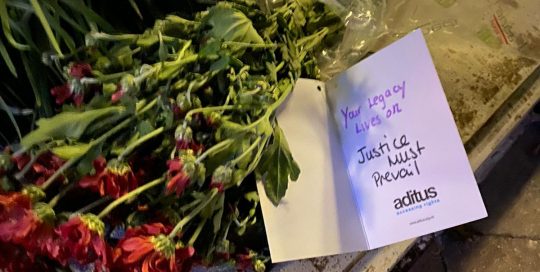 Your Legacy
Lives on
Justice
Must
Prevail
aditus
accessing rights